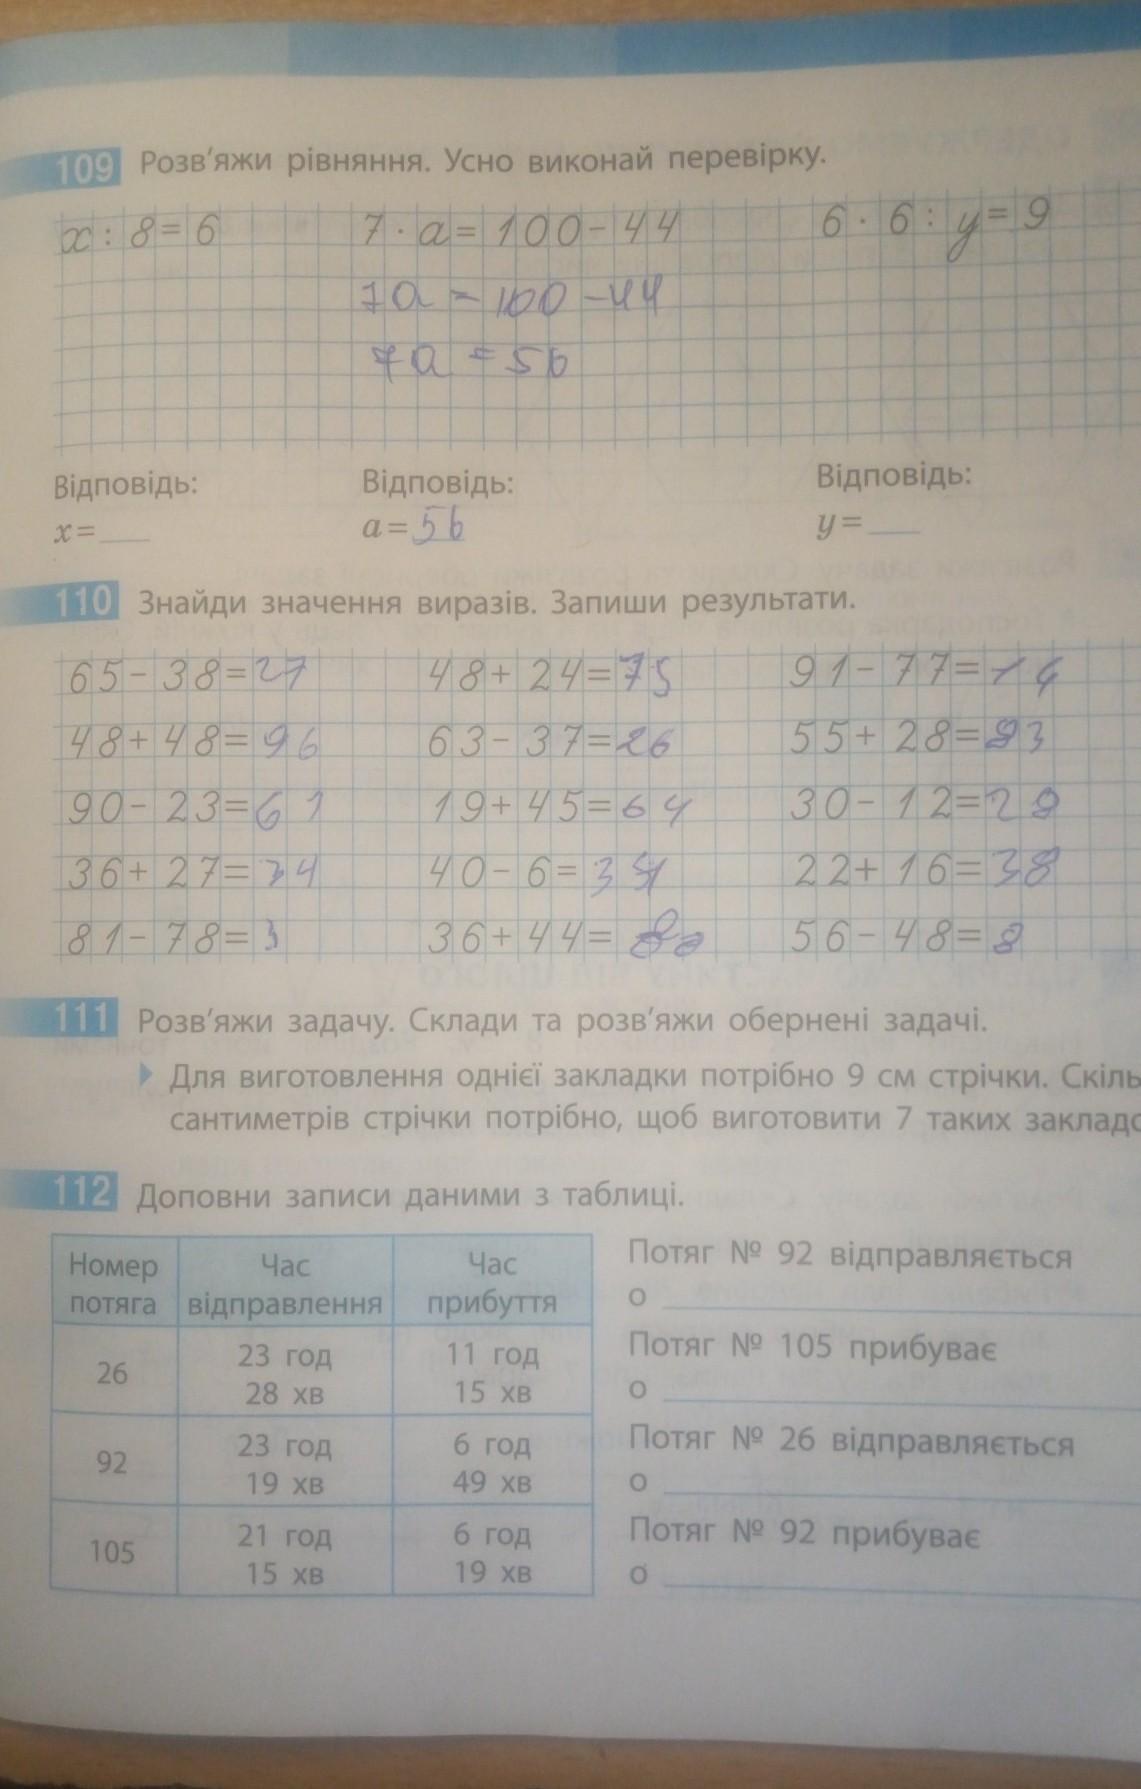 109 Розв'яжи рівняння. Усно виконай перевірку.
x : 8 = 6 7 · a = 100 − 44 6 · 6 : y = 9
7a = 100 − 44
7a = 56
Відповідь: Відповідь: Відповідь:
x = ___ a = 56 y = ___
110 Знайди значення виразів. Запиши результати.
65 − 38 = 27 48 + 24 = 75 91 − 77 = 14
48 + 48 = 96 63 − 37 = 26 55 + 28 = 93
90 − 23 = 61 19 + 45 = 64 30 − 12 = 28
36 + 27 = 34 40 − 6 = 34 22 + 16 = 38
81 − 78 = 3 36 + 44 = 56 − 48 = 8
111 Розв'яжи задачу. Склади та розв'яжи обернені задачі.
Для виготовлення однієї закладки потрібно 9 см стрічки. Скіль
сантиметрів стрічки потрібно, щоб виготовити 7 таких закладо
112 Доповни записи даними з таблиці.
Номер потяга Час відправлення Час прибуття
26 23 год 28 хв 11 год 15 хв
92 23 год 19 хв 6 год 49 хв
105 21 год 15 хв 6 год 19 хв
Потяг № 92 відправляється
о
Потяг № 105 прибуває
о
Потяг № 26 відправляється
о
Потяг № 92 прибуває
о